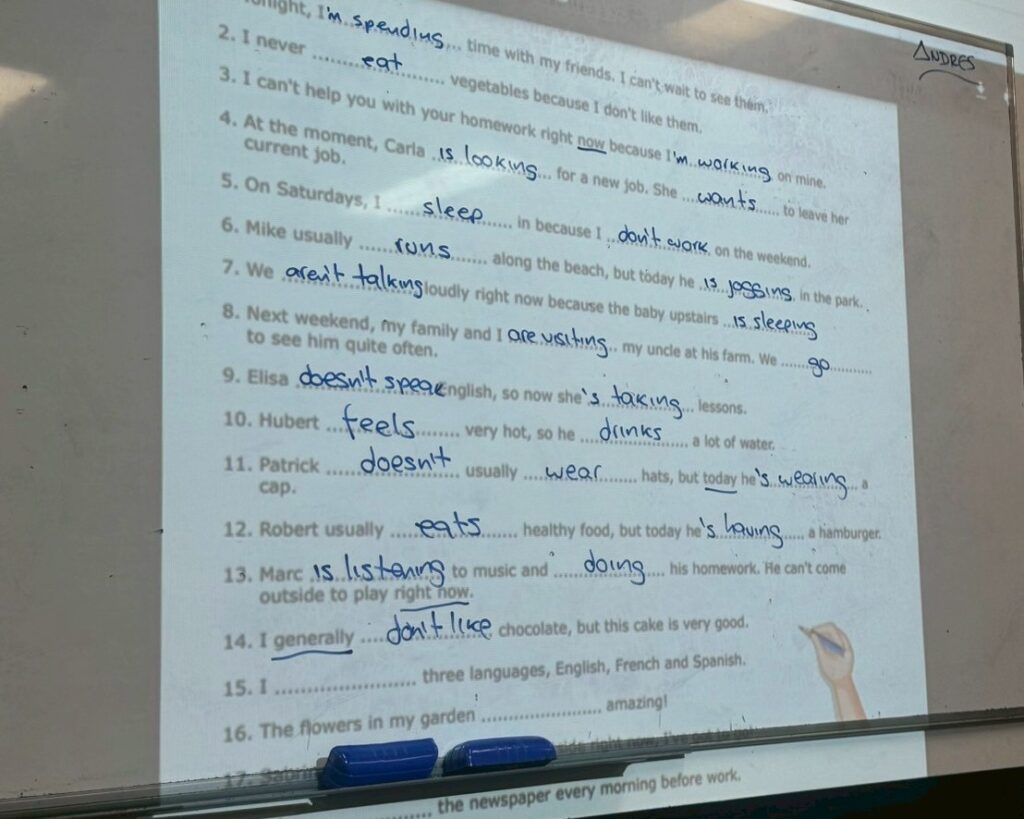 ANDRES
I'm spending... time with my friends. I can't wait to see them.
2. I never ........eat......... vegetables because I don't like them.
3. I can't help you with your homework right now because I'm working on mine.
4. At the moment, Carla ..is looking... for a new job. She ...wants...... to leave her
current job.
5. On Saturdays, I ......sleep...... in because I ..don't work on the weekend.
6. Mike usually ......runs....... along the beach, but today he ..is jogging. in the park.
7. We aren't talking loudly right now because the baby upstairs ..is sleeping
8. Next weekend, my family and I are visiting.. my uncle at his farm. We ......go..........
to see him quite often.
9. Elisa doesn't speak English, so now she's taking... lessons.
10. Hubert ...feels........ very hot, so he ....drinks..... a lot of water.
11. Patrick .....doesn't usually ....wear........ hats, but today he's wearing.. a
cap.
12. Robert usually .....eats...... healthy food, but today he's having..... a hamburger.
13. Marc is listening to music and .....doing.... his homework. He can't come
outside to play right now.
14. I generally ....don't like chocolate, but this cake is very good.
15. I ........................ three languages, English, French and Spanish.
16. The flowers in my garden ..................... amazing!
17.
the newspaper every morning before work.